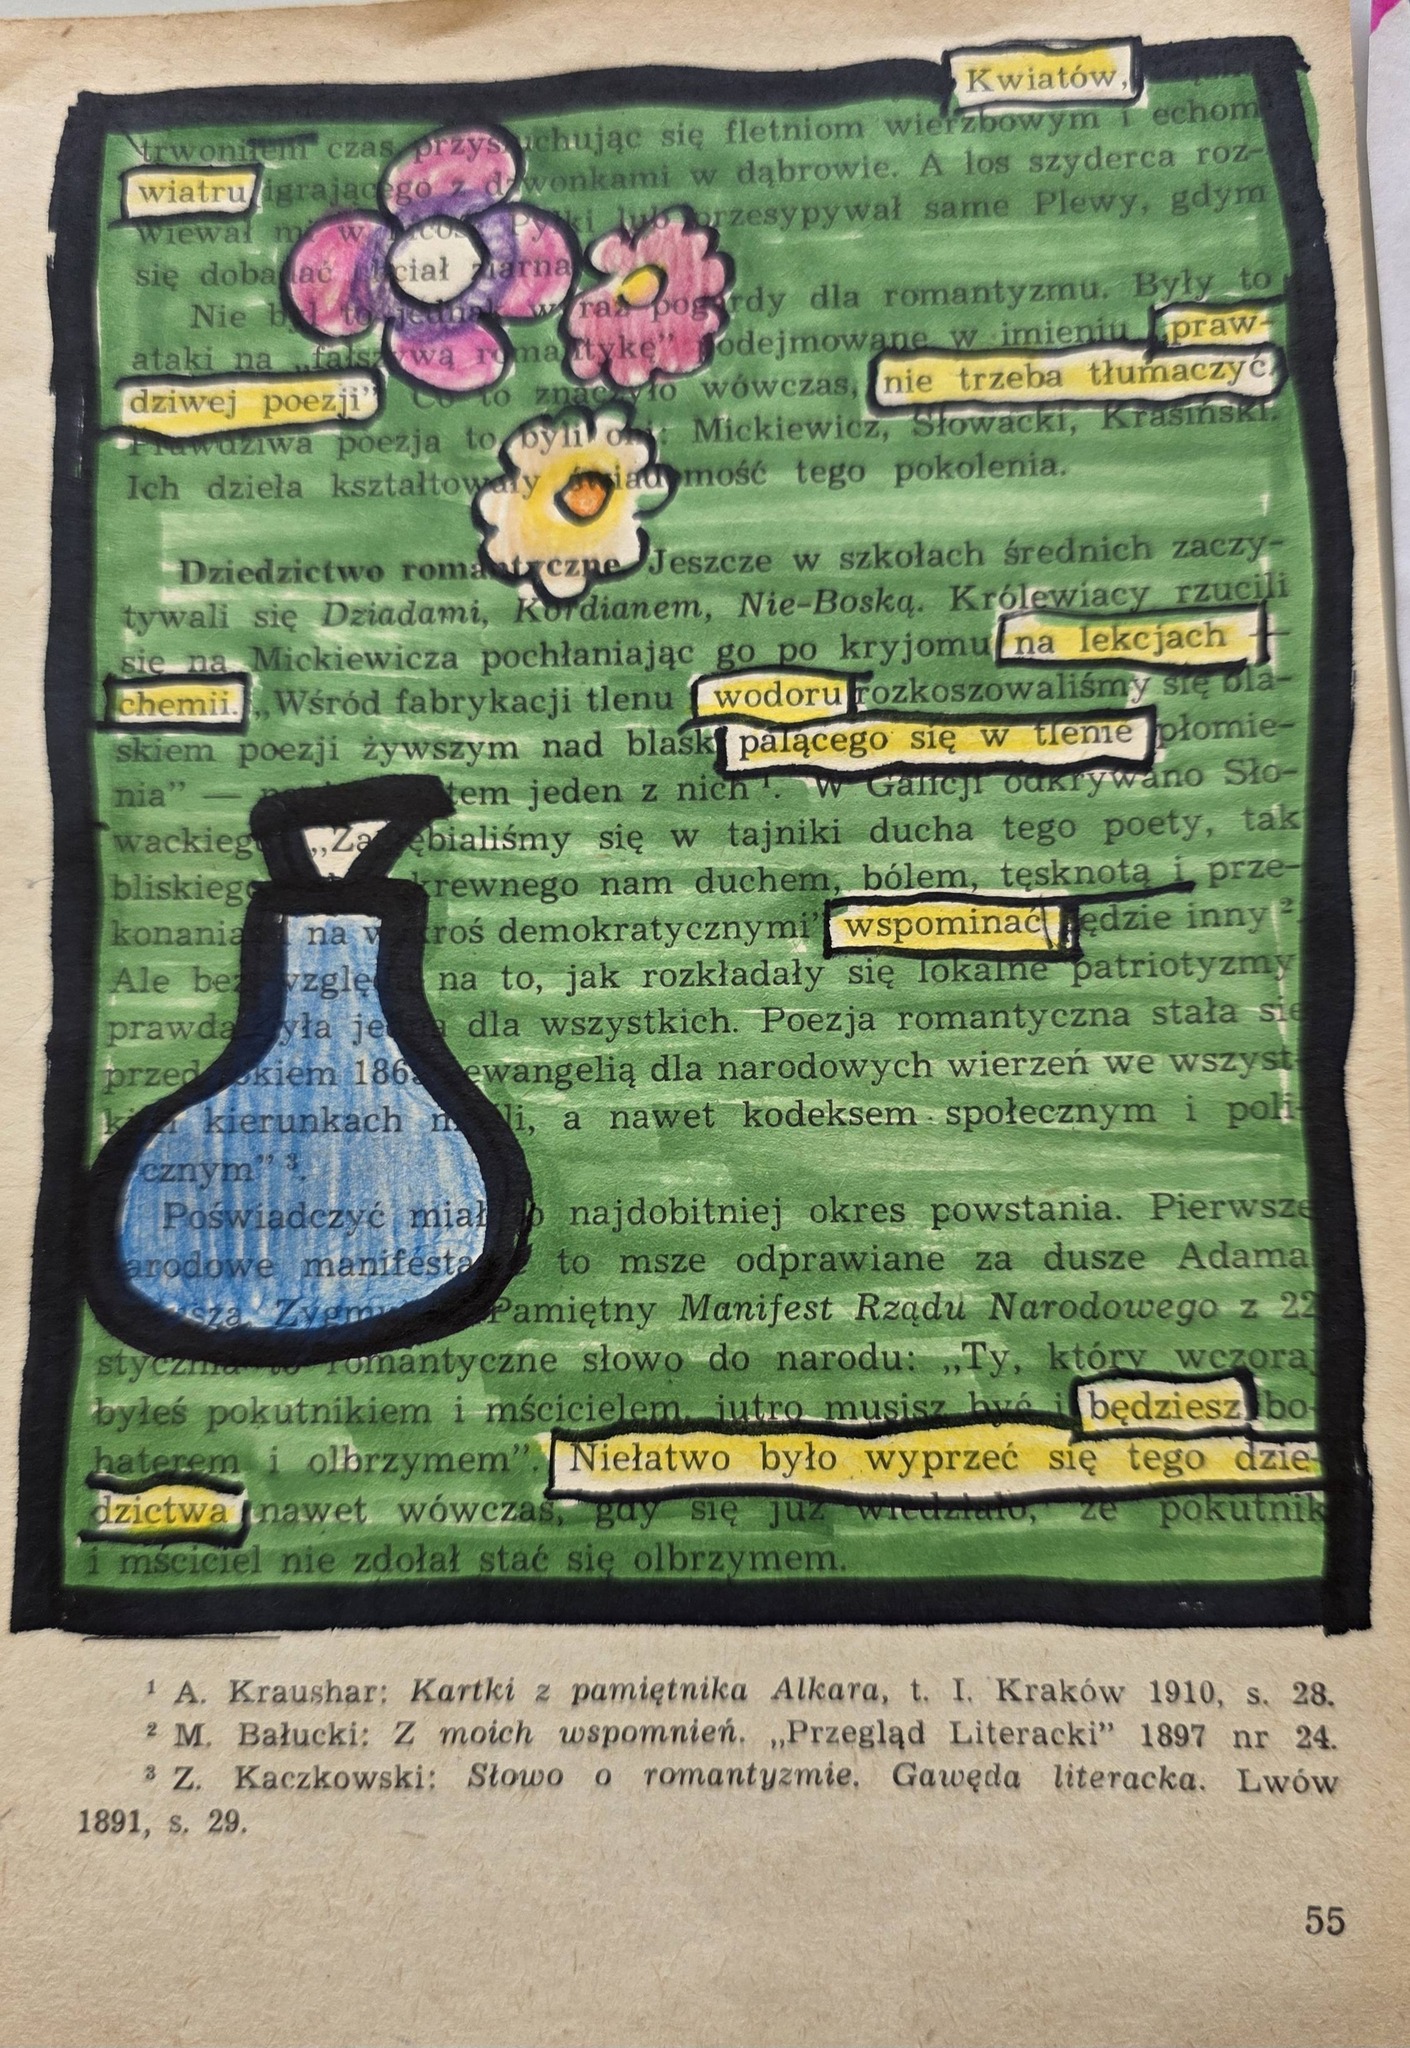 Kwiatów,
trwoniłem czas przysłuchując się fletniom wierzbowym i echom
wiatru igrającego z dzwonkami w dąbrowie. A los szyderca roz-
wiewał mi w nicość Pyłki lub przesypywał same Plewy, gdym
się dobadać chciał ziarna
Nie był to jednak wyraz pogardy dla romantyzmu. Były to
ataki na „fałszywą romantykę” podejmowane w imieniu „praw-
dziwej poezji” Co to znaczyło wówczas, nie trzeba tłumaczyć
Prawdziwa poezja to byli oni: Mickiewicz, Słowacki, Krasiński.
Ich dzieła kształtowały świadomość tego pokolenia.
Dziedzictwo romantyczne Jeszcze w szkołach średnich zaczy-
tywali się Dziadami, Kordianem, Nie-Boską. Królewiacy rzucili
się na Mickiewicza pochłaniając go po kryjomu na lekcjach
chemii. „Wśród fabrykacji tlenu wodoru rozkoszowaliśmy się bla-
skiem poezji żywszym nad blask palącego się w tlenie płomie-
nia” — tem jeden z nich ¹. W Galicji odkrywano Sło-
wackiego „Zagłębialiśmy się w tajniki ducha tego poety, tak
bliskiego krewnego nam duchem, bólem, tęsknotą i prze-
konaniami na wskroś demokratycznymi” wspominać będzie inny ².
Ale bez względu na to, jak rozkładały się lokalne patriotyzmy
prawda była jedna dla wszystkich. Poezja romantyczna stała się
przed rokiem 1863 ewangelią dla narodowych wierzeń we wszyst-
kich kierunkach myśli, a nawet kodeksem społecznym i poli-
cznym” ³.
Poświadczyć miał to najdobitniej okres powstania. Pierwsze
narodowe manifestacje to msze odprawiane za dusze Adama
Juliusza, Zygmunta. Pamiętny Manifest Rządu Narodowego z 22
stycznia to romantyczne słowo do narodu: „Ty, który wczoraj
byłeś pokutnikiem i mścicielem, jutro musisz być i będziesz bo-
haterem i olbrzymem”. Niełatwo było wyprzeć się tego dzie-
dzictwa nawet wówczas, gdy się już wiedziało, że pokutnik
i mściciel nie zdołał stać się olbrzymem.
¹ A. Kraushar: Kartki z pamiętnika Alkara, t. I. Kraków 1910, s. 28.
² M. Bałucki: Z moich wspomnień. „Przegląd Literacki” 1897 nr 24.
³ Z. Kaczkowski: Słowo o romantyzmie. Gawęda literacka. Lwów
1891, s. 29.
55